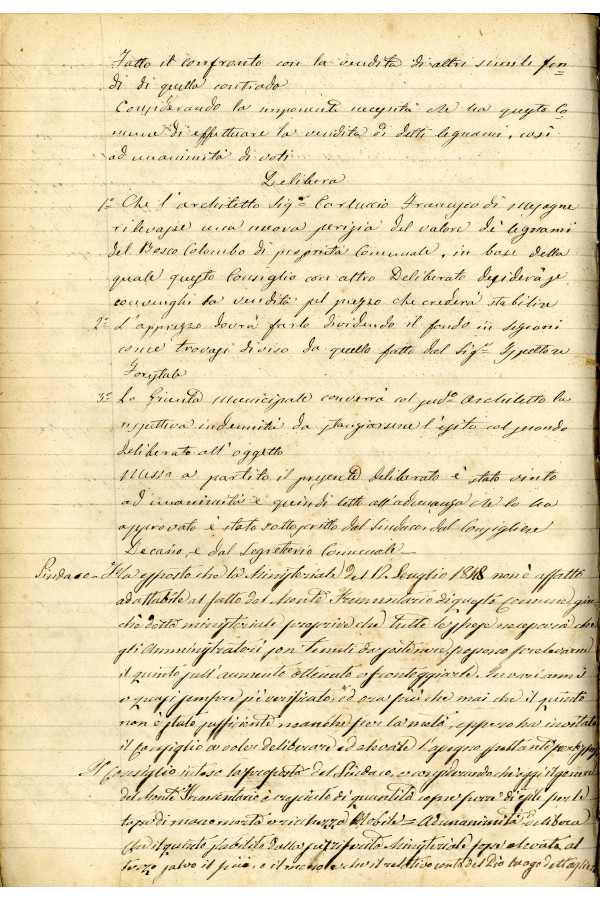 Fatto il confronto con la vendita di altri simili fon=
di di quella contrada
Considerando la imponente necessità che ha questo Co=
mune di effettuare la vendita di detti legnami, così
ad unanimità di voti
Delibera
1º Che l'architetto Sigr Carluccio Francesco di Mesagne
rilevasse una nuova perizia del valore de' legnami
del Bosco Colombo di proprietà Comunale, in base della
quale questo Consiglio con altro Deliberato deciderà se
convenghi la vendita pel prezzo che crederà stabilire
2º L'apprezzo dovrà farlo dividendo il fondo in sezioni
come trovasi diviso da quello fatto dal Sigr Ispettore
Forestale
3º La Giunta Municipale converrà col sudo Architetto la
rispettiva indennità da stanziarsene l'esito col secondo
deliberato all'oggetto
Messo a partito il presente deliberato è stato vinto
ad unanimità e quindi letto all'adunanza che lo ha
approvato è stato sottoscritto dal Sindaco, dal Consigliere
Decano, e dal Segretario Comunale_
Sindaco - Ha esposto che la Ministeriale del 12 Luglio 1848 non è affatto
adattabile al fatto del Monte Frumentario di questo Comune, giac
chè detta ministeriale prescrive che tutte le spese necessarie che
gli Amministratori son tenuti da sostenere, possono prelevarsi
il quinto sull'aumento ottenuto a fronteggiarle. In vari anni
o quasi sempre si è verificato, ed ora più che mai che il quinto
non è stato sufficiente neanche per la metà, eppero ha invitato
il Consiglio a voler deliberare ed elevare l'assegno
Il Consiglio inteso la proposta del Sindaco, e considerando che oggi il genere
del Monte Frumentario è cresciuto di quantità per le
tasse di manomorta e ricchezza Mobile = Ad unanimità delibera
che il quinto stabilito dalla Ministeriale fosse elevato al
terzo salvo il più, o il meno del Pio Luogo